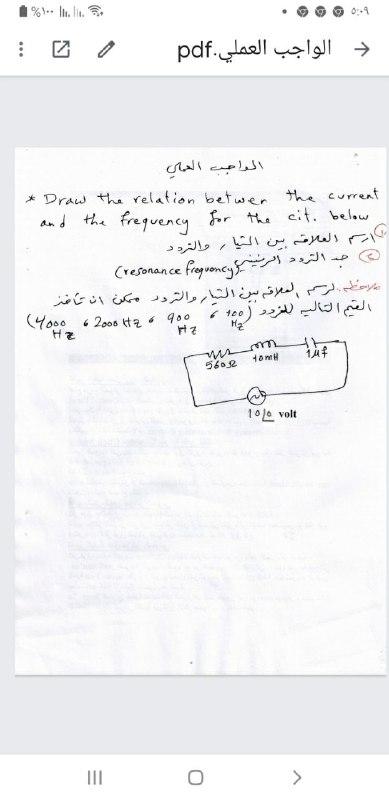 %١٠٠ ٥:٠٩
الواجب العملي.pdf
الواجب العملي
* Draw the relation betwen the current
and the frequency for the cit. below
① ارسم العلاقه بين التيار والتردد
② جد التردد الرنيني (resonance frequency)
ملاحظه .. لرسم العلاقه بين التيار والتردد ممكن ان تأخذ
القيم التاليه للتردد (100 Hz ، 900 Hz ، 2000 Hz ، 4000 Hz)
560Ω 10mH 1μf
10/0 volt